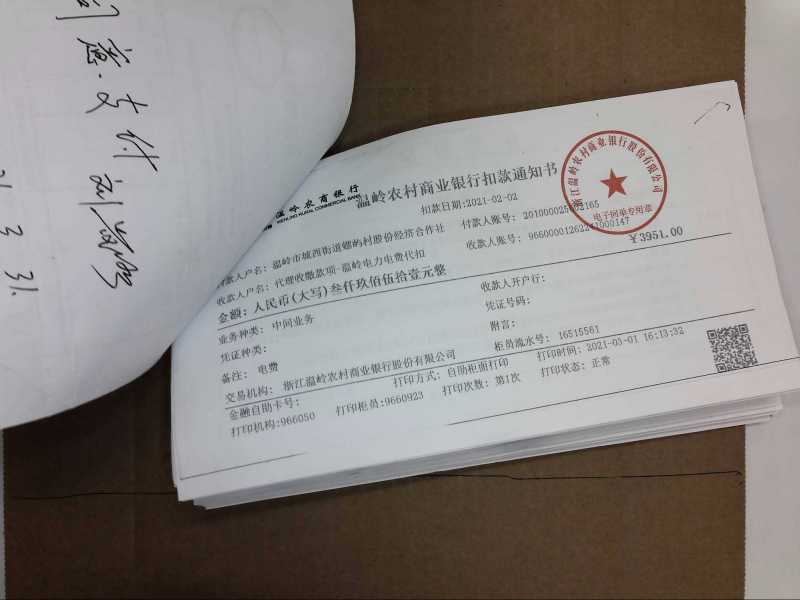 同意支付
21.3.31.
温岭农商银行
WENLING RURAL COMMERCIAL BANK
温岭农村商业银行扣款通知书
扣款日期:2021-02-02
付款人户名: 温岭市城西街道螺屿村股份经济合作社
付款人账号:
收款人户名: 代理收缴款项-温岭电力电费代扣
收款人账号:
金额: 人民币(大写)叁仟玖佰伍拾壹元整
¥3951.00
业务种类: 中间业务
收款人开户行:
凭证种类:
凭证号码:
备注: 电费
附言:
交易机构: 浙江温岭农村商业银行股份有限公司
柜员流水号: 16515561
金融自助卡号:
打印方式: 自助柜面打印
打印时间: 2021-03-01 16:13:32
打印机构:966050
打印柜员:9660923
打印次数: 第1次
打印状态: 正常
浙江温岭农村商业银行股份有限公司
电子回单专用章